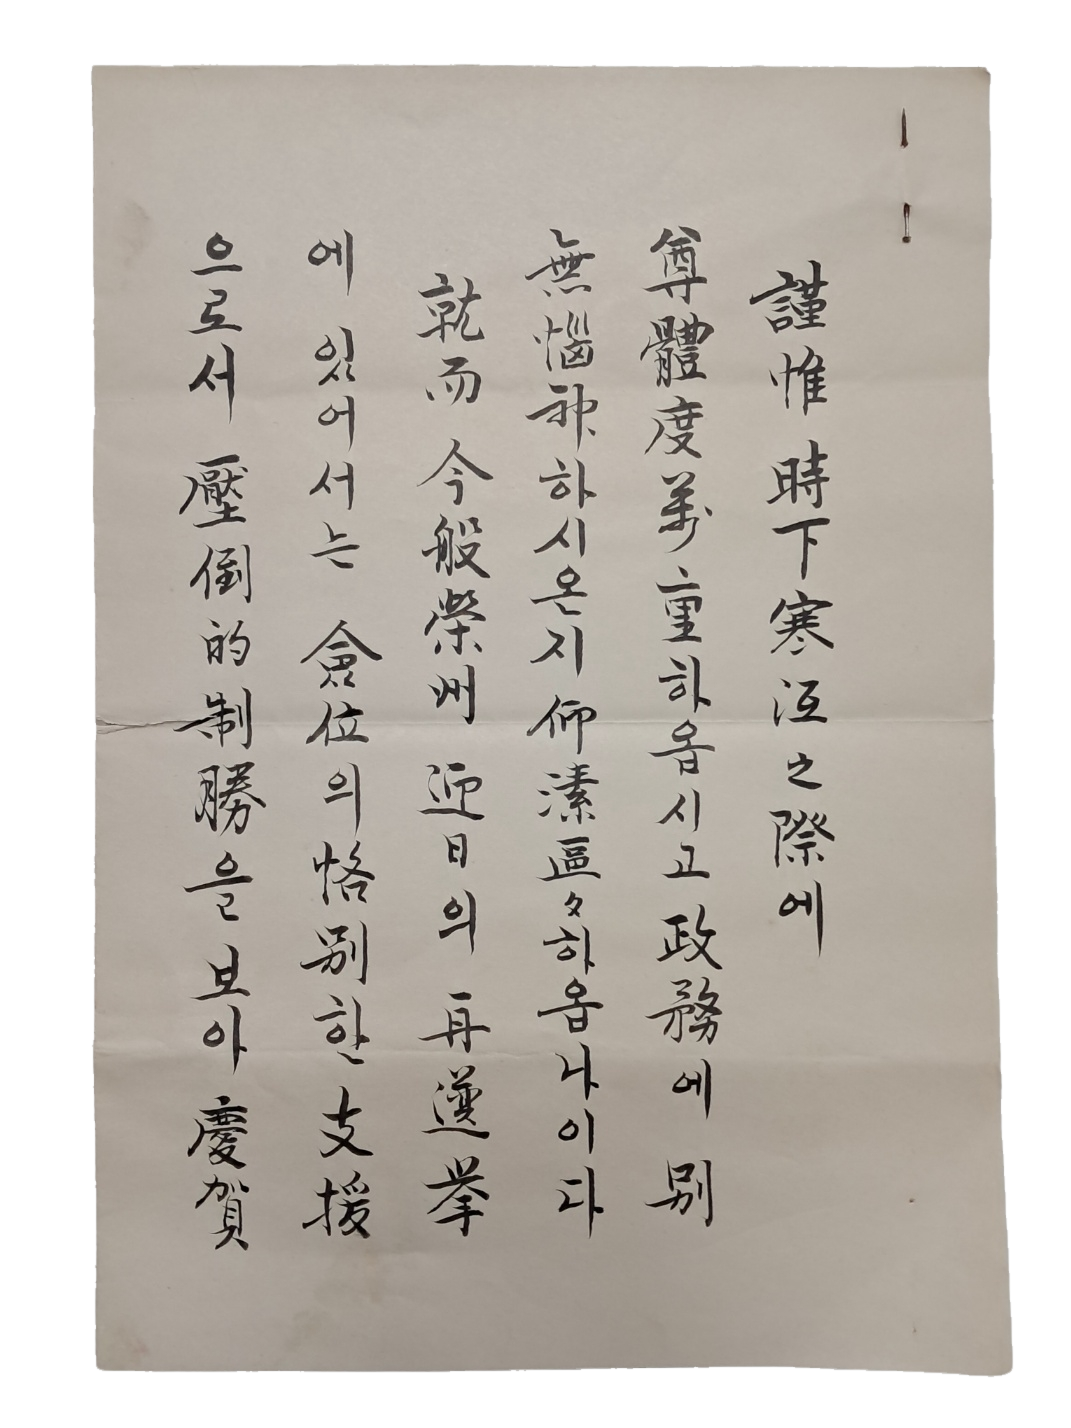 謹惟 時下寒沍之際에
尊體度萬重하옵시고 政務에 別
無惱神하시온지 仰溸區々하옵나이다
就而 今般榮州 近日의 再選挙
에 있어서는 僉位의 恪別한 支援
으로서 壓倒的制勝을 보아 慶賀